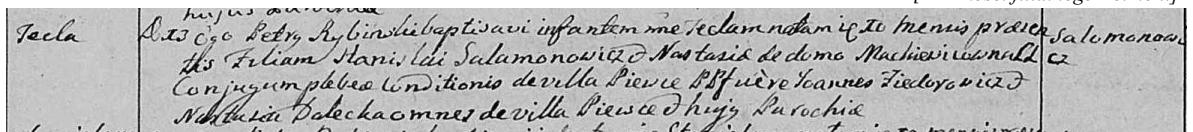 hujus Parochiæ
Tecla
D 13 Ego Petrus Rybinski baptisavi infantem nne Teclam natam 10 mensis præsen
tis Filiam Stanislai Salamonowicz & Nastasiæ de domo Mackiewicowna LL
Conjugum plebeæ Conditionis de villa Piewce PP fuere Joannes Fiedorowicz &
Nastasia Dalecka omnes de villa Piewce & hujus Parochiæ
Salomonowi
cz